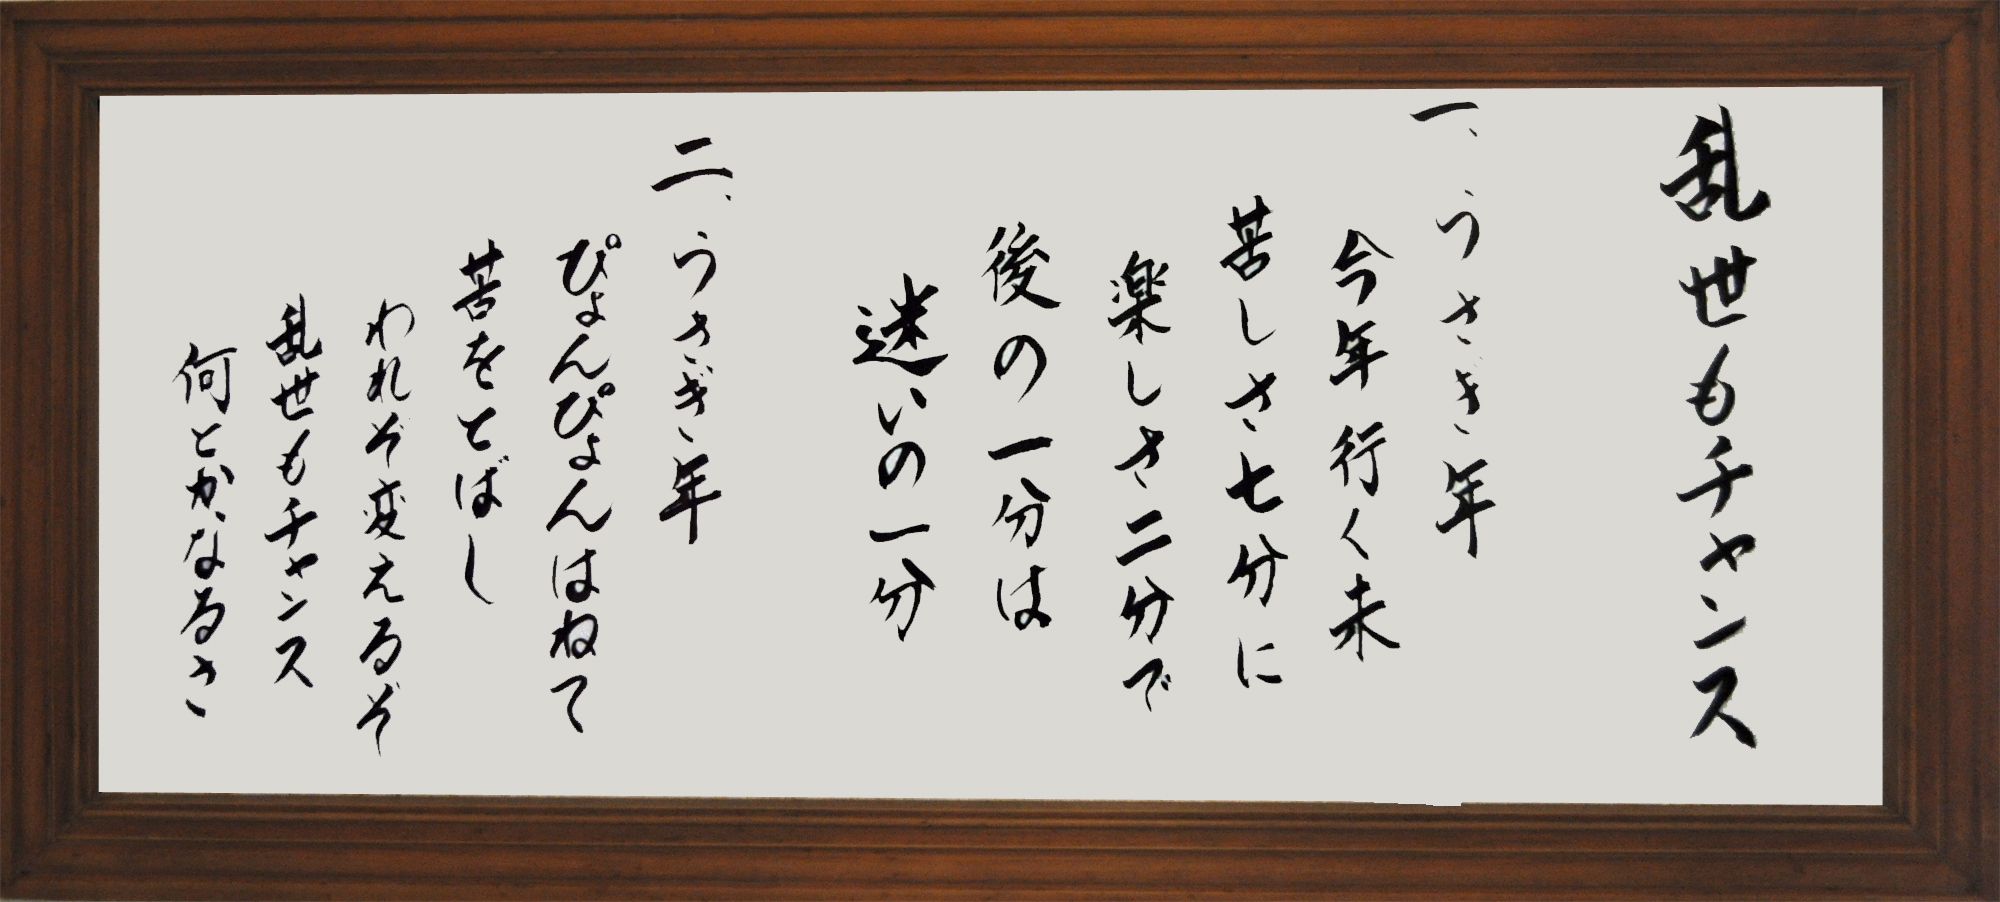 乱世もチャンス
一、うさぎ年
今年行く末
苦しさ七分に
楽しさ二分で
後の一分は
迷いの一分
二、うさぎ年
ぴょんぴょんはねて
苦をとばし
われぞ変えるぞ
乱世もチャンス
何とかなるさ